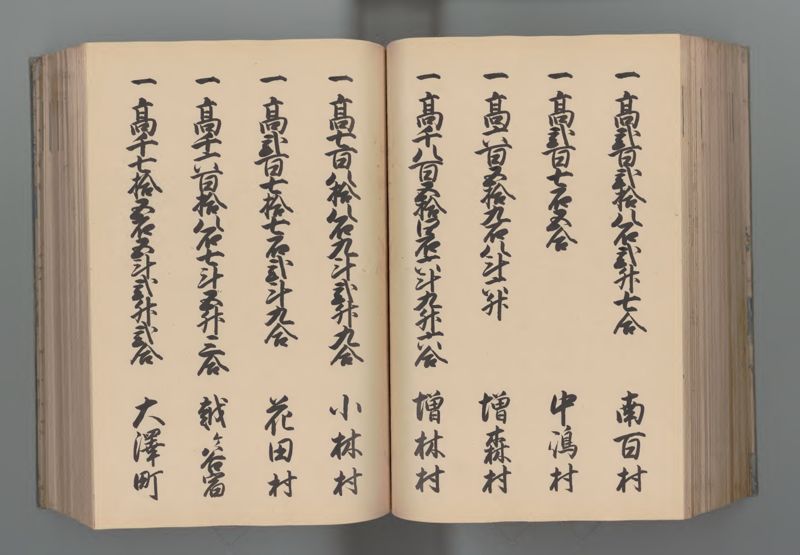 一高弐百弐拾八石弐升七合 南百村
一高弐百七石五合 中嶋村
一高六百五拾九石八斗六升 増森村
一高千八百五拾四石六斗九升六合 増林村
一高七百八拾八石九斗弐升九合 小林村
一高弐百七拾七石弐斗九合 花田村
一高千六百拾八石七斗五升二合 越ヶ谷宿
一高千七拾五石五斗弐升弐合 大澤町